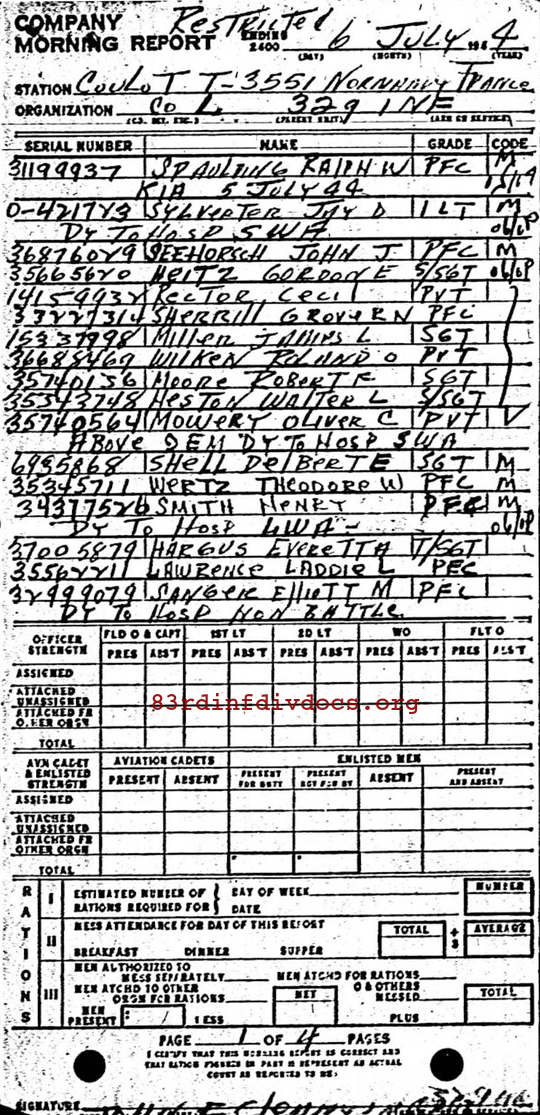 COMPANY Restricted
MORNING REPORT ENDING 2400 6 JULY 1944
(DAY) (MONTH) (YEAR)
STATION Coulot T-3551 Normandy France
ORGANIZATION Co L 329 INF
SERIAL NUMBER NAME GRADE CODE
31199937 SPAULDING RALPH W PFC M
KIA 5 JULY 44
O-421773 SYLVESTER JAY D 1 LT M
DY To Hosp SWA
36876029 SEEHORSCH JOHN J PFC M
35665620 HEITZ GORDON E S/SGT
14159932 RECTOR Cecil PVT
33227314 SHERRILL GROVER N PFC
15337998 Miller JAMES L SGT
36688469 WILKEN ROLAND O PVT
35740136 MOORE ROBERT F SGT
35343748 HESTON WALTER L S/SGT
35740564 MOWERY OLIVER C PVT
ABove 9 EM DY To Hosp SWA
6935868 SHELL DelBERT E SGT M
35345711 WERTZ THEODORE W PFC M
34377526 SMITH HENRY PFC M
DY To Hosp LWA
37005879 HARGUS EVERETT A T/SGT
35562211 LAWRENCE LADDIE L PFC
32999079 SANGER ElliOTT M PFC
DY To Hosp NON BATTLE
OFFICER STRENGTH FLD O & CAPT 1ST LT 2D LT WO FLT O
PRES ABST PRES ABST PRES ABST PRES ABST PRES ABST
ASSIGNED
ATTACHED UNASSIGNED
83rdinfdivdocs.org
ATTACHED FR OTHER ORGN
TOTAL
AVN CADET & ENLISTED STRENGTH AVIATION CADETS ENLISTED MEN
PRESENT ABSENT PRESENT FOR DUTY PRESENT NOT FOR DY ABSENT PRESENT AND ABSENT
ASSIGNED
ATTACHED UNASSIGNED
ATTACHED FR OTHER ORGN
TOTAL
RATIONS
I ESTIMATED NUMBER OF RATIONS REQUIRED FOR DAY OF WEEK NUMBER
DATE
II MESS ATTENDANCE FOR DAY OF THIS REPORT TOTAL ÷ 3 AVERAGE
BREAKFAST DINNER SUPPER
III MEN AUTHORIZED TO MESS SEPARATELY MEN ATCHD FOR RATIONS
MEN ATCHD TO OTHER ORGN FOR RATIONS NET O & OTHERS MESSED TOTAL
MEN PRESENT LESS PLUS
PAGE 1 OF 4 PAGES
I CERTIFY THAT THIS MORNING REPORT IS CORRECT AND
THAT RATION FIGURES IN PART III REPRESENT AN ACTUAL
COUNT AS REPORTED TO ME:
SIGNATURE